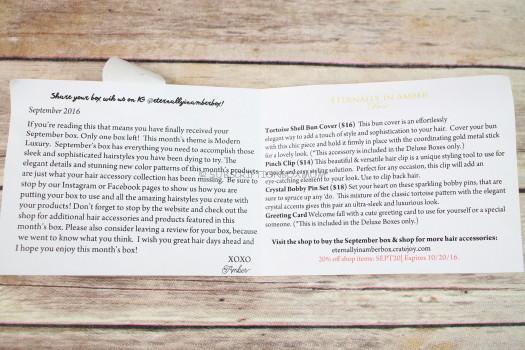 Share your box with us on IG @eternallyinamberbox!
September 2016
If you're reading this that means you have finally received your
September box. Only one box left! This month's theme is Modern
Luxury. September's box has everything you need to accomplish those
sleek and sophisticated hairstyles you have been dying to try. The
elegant details and stunning new color patterns of this month's products
are just what your hair accessory collection has been missing. Be sure to
stop by our Instagram or Facebook pages to show us how you are
putting your box to use and all the amazing hairstyles you create with
your products! Don't forget to stop by the website and check out the
shop for additional hair accessories and products featured in this
month's box. Please also consider leaving a review for your box, because
we want to know what you think. I wish you great hair days ahead and
I hope you enjoy this month's box!
XOXO
Amber
ETERNALLY IN AMBER
Tortoise Shell Bun Cover ($16) This bun cover is an effortlessly
elegant way to add a touch of style and sophistication to your hair. Cover your bun
with this chic piece and hold it firmly in place with the coordinating gold metal stick
for a lovely look. (*This accessory is included in the Deluxe Boxes only.)
Pinch Clip ($14) This beautiful & versatile hair clip is a unique styling tool to use for
a quick and easy styling solution. Perfect for any occasion, this clip will add an
eye-catching element to your look. Use to clip back hair.
Crystal Bobby Pin Set ($18) Set your heart on these sparkling bobby pins, that are
sure to spruce up any 'do. This mixture of the classic tortoise pattern with the elegant
crystal accents gives this pair an ultra-sleek and luxurious look.
Greeting Card Welcome fall with a cute greeting card to use for yourself or a special
someone. (*This is included in the Deluxe Boxes only.)
Visit the shop to buy the September box & shop for more hair accessories:
eternallyinamberbox.cratejoy.com
20% off shop items: SEPT20| Expires 10/20/16.